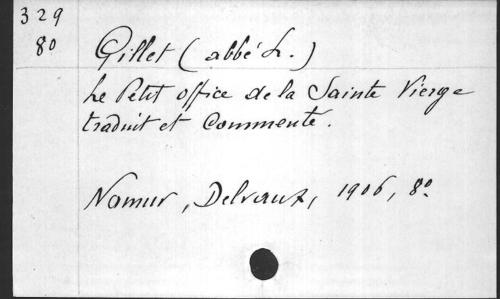 329
80
Gillet (abbé L.)
Le Petit office de la Sainte Vierge
traduit et commenté.
Namur, Delvaux, 1906, 8º.